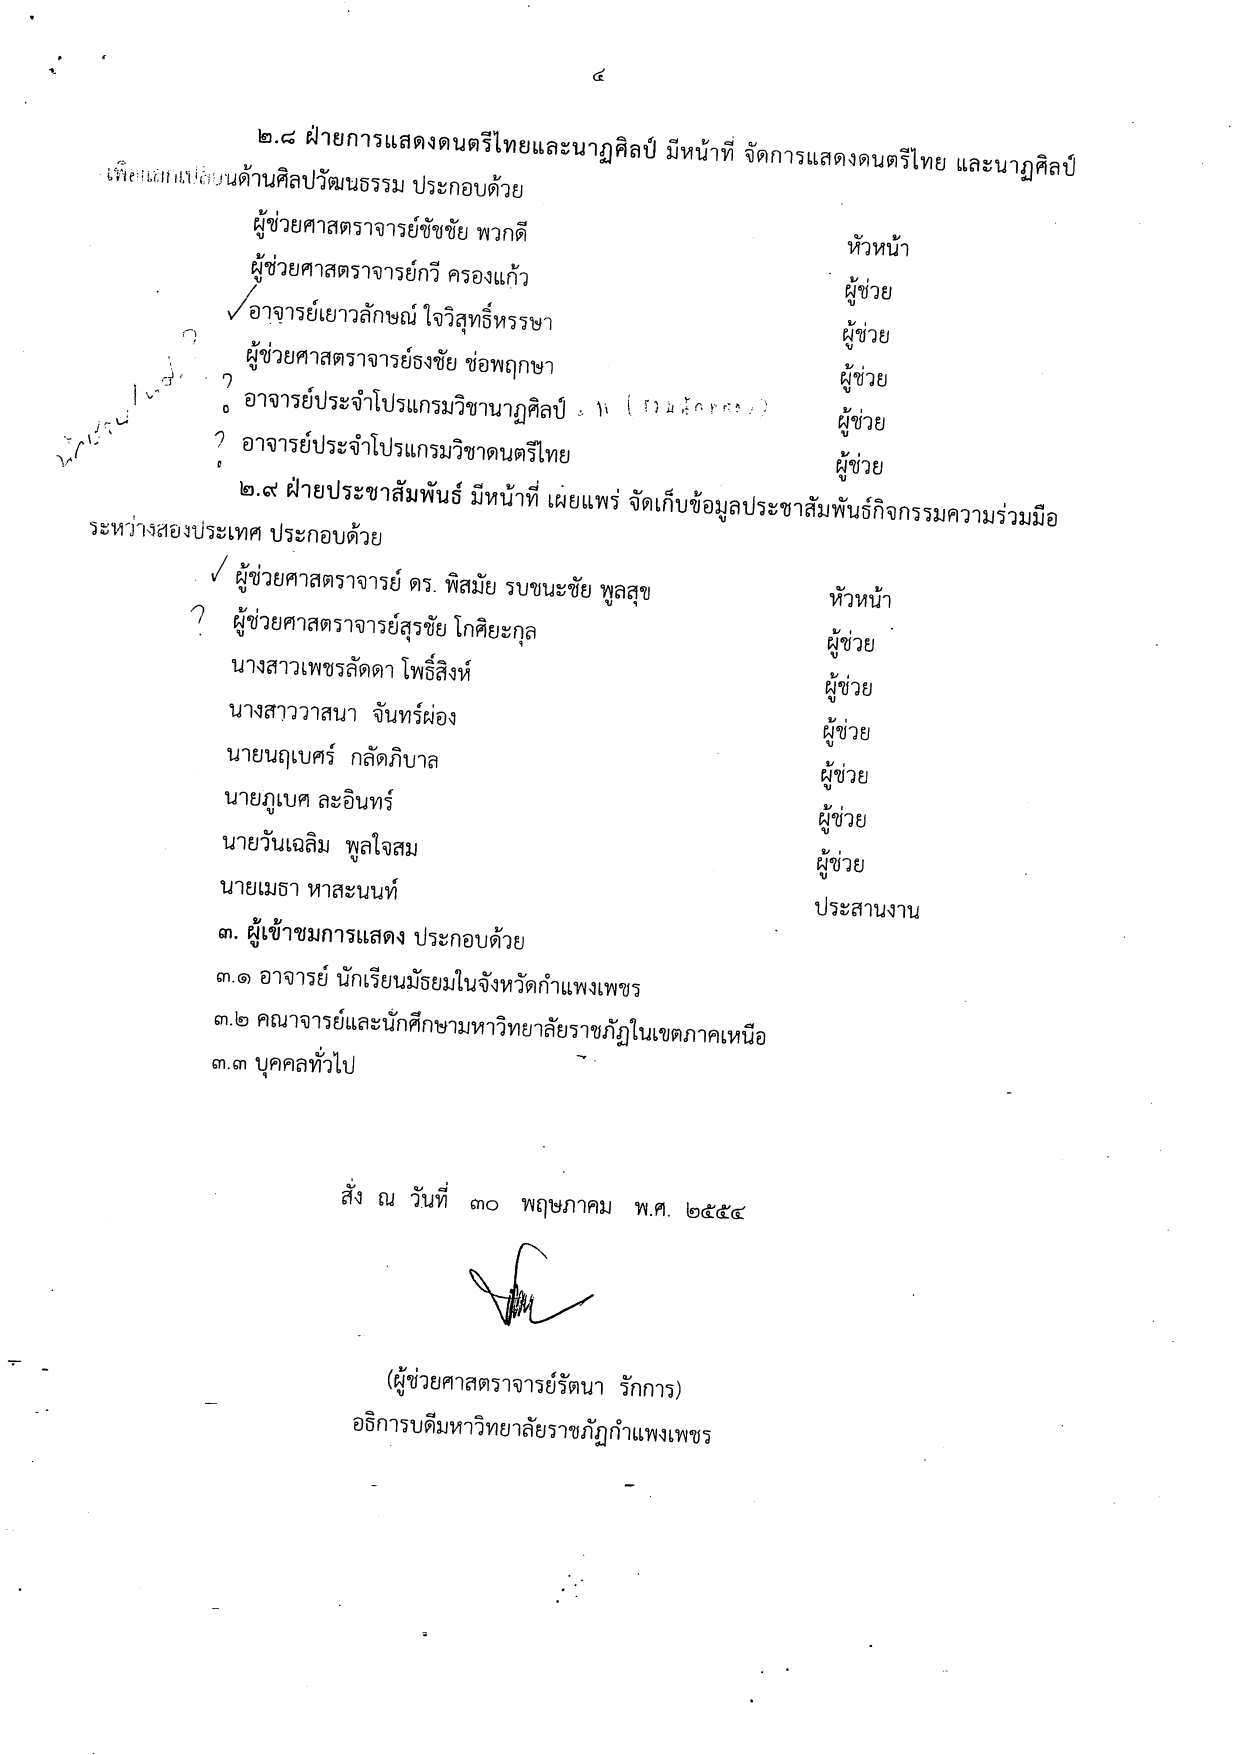 ๔
๒.๘ ฝ่ายการแสดงดนตรีไทยและนาฏศิลป์ มีหน้าที่ จัดการแสดงดนตรีไทย และนาฏศิลป์
เพื่อแลกเปลี่ยนด้านศิลปวัฒนธรรม ประกอบด้วย
ผู้ช่วยศาสตราจารย์ชัชชัย พวกดี หัวหน้า
ผู้ช่วยศาสตราจารย์กวี ครองแก้ว ผู้ช่วย
✓ อาจารย์เยาวลักษณ์ ใจวิสุทธิ์หรรษา ผู้ช่วย
ผู้ช่วยศาสตราจารย์ธงชัย ช่อพฤกษา ผู้ช่วย
? อาจารย์ประจำโปรแกรมวิชานาฏศิลป์ ผู้ช่วย
? อาจารย์ประจำโปรแกรมวิชาดนตรีไทย ผู้ช่วย
๒.๙ ฝ่ายประชาสัมพันธ์ มีหน้าที่ เผยแพร่ จัดเก็บข้อมูลประชาสัมพันธ์กิจกรรมความร่วมมือ
ระหว่างสองประเทศ ประกอบด้วย
✓ ผู้ช่วยศาสตราจารย์ ดร. พิสมัย รบชนะชัย พูลสุข หัวหน้า
? ผู้ช่วยศาสตราจารย์สุรชัย โกศิยะกุล ผู้ช่วย
นางสาวเพชรลัดดา โพธิ์สิงห์ ผู้ช่วย
นางสาววาสนา จันทร์ผ่อง ผู้ช่วย
นายนฤเบศร์ กลัดภิบาล ผู้ช่วย
นายภูเบศ ละอินทร์ ผู้ช่วย
นายวันเฉลิม พูลใจสม ผู้ช่วย
นายเมธา หาสะนนท์ ประสานงาน
๓. ผู้เข้าชมการแสดง ประกอบด้วย
๓.๑ อาจารย์ นักเรียนมัธยมในจังหวัดกำแพงเพชร
๓.๒ คณาจารย์และนักศึกษามหาวิทยาลัยราชภัฏในเขตภาคเหนือ
๓.๓ บุคคลทั่วไป
สั่ง ณ วันที่ ๓๐ พฤษภาคม พ.ศ. ๒๕๕๔
(ผู้ช่วยศาสตราจารย์รัตนา รักการ)
อธิการบดีมหาวิทยาลัยราชภัฏกำแพงเพชร